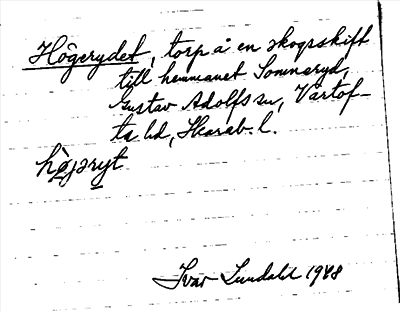 Högerydet, torp å en skogsskift
till hemmanet Sommaryd,
Gustav Adolfs sn, Vartof-
ta hd, Skarab. l.
högəryt
Ivar Lundahl 1948